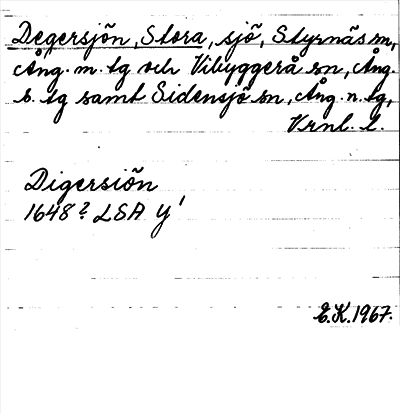 Degersjön, Stora, sjö, Styrnäs sn,
Ång. m. tg och Vibyggerå sn, Ång.
s. tg samt Sidensjö sn, Ång. n. tg,
Vrnl. l.
Digersiön
1648? LSA Y'
E.K. 1967.